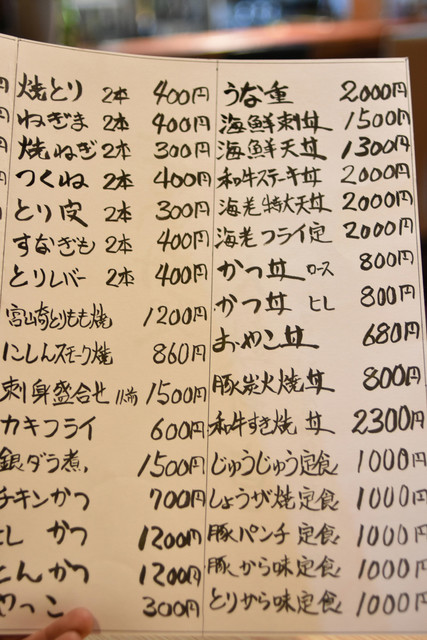 焼とり 2本 400円
ねぎま 2本 400円
焼ねぎ 2本 300円
つくね 2本 400円
とり皮 2本 300円
すなぎも 2本 400円
とりレバー 2本 400円
宮崎とりもも焼 1200円
にしんスモーク焼 860円
刺身盛合せ 1500円
カキフライ 600円
銀ダラ煮 1500円
チキンかつ 700円
ヒレ かつ 1200円
とんかつ 1200円
やっこ 300円
うな重 2000円
海鮮刺丼 1500円
海鮮天丼 1300円
和牛ステーキ丼 2000円
海老特大天丼 2000円
海老フライ定 2000円
かつ丼 ロース 800円
かつ丼 ヒレ 800円
おやこ丼 680円
豚炭火焼丼 800円
和牛すき焼丼 2300円
じゅうじゅう定食 1000円
しょうが焼定食 1000円
豚パンチ定食 1000円
豚から味定食 1000円
とりから味定食 1000円